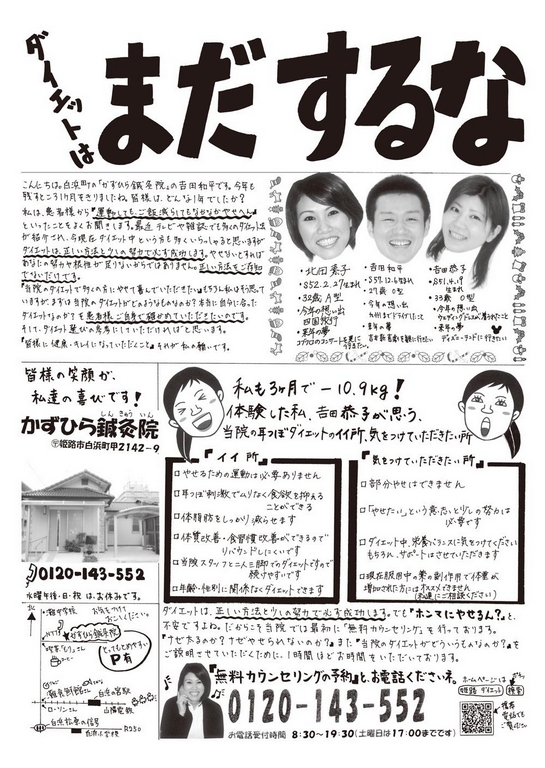 ダイエットは
まだするな
こんにちは。白浜町の「かずひら鍼灸院」の吉田和平です。今年も
残すところ1ヶ月をきりましたね。皆様は、どんな1年でしたか?
私は、患者様から『運動しても、ご飯減らしてもなかなかやせへん』
といったことをよくお聞きします。最近テレビや雑誌でも多くのダイエット法
が紹介され、今現在ダイエット中という方も多くいらっしゃると思いますが
ダイエットは、正しい方法と少しの努力で必ず成功します。やせないとすれば
あなたの努力や根性が足りないからではありません。正しい方法をご存知
でないだけです。
『当院のダイエットで多くの方にやせて喜んでいただきたい』もちろん私はそう思って
いますが、まずは当院のダイエットがどのようなものなのか?本当に自分に合った
ダイエットなのか?を患者様ご自身で確かめていただきたいのです。
そして、ダイエット選びの参考にしていただければと思います。
『皆様に健康・キレイになっていただくこと』それが私の願いです。
・北田 景子
・S52.2.27生まれ
・32歳 A型
・今年の想い出
四国旅行
・来年の夢
コブクロのコンサートを見に
行きたい。
・吉田 和平
・S57.12.6生まれ
・27歳 O型
・今年の想い出
九州までドライブしたこと
・来年の夢
・吉田 恭子
・S51.4.19
生まれ
・33歳 O型
・今年の想い出
ウェディングドレスが着れたこと
・来年の夢
ディズニーランドに行きたい
皆様の笑顔が、
私達の喜びです!
しん きゅう いん
かずひら鍼灸院
〒姫路市白浜町甲2142-9
0120-143-552
水曜午後・日・祝は、お休みです。
私も3ヶ月で-10.9kg!
体験した私、吉田恭子が思う、
当院の耳つぼダイエットのイイ所、気をつけていただきたい所
『イイ所』
□やせるための運動は必要ありません
□耳つぼ刺激でムリなく食欲を抑える
ことができる
□体脂肪をしっかり減らせます
□体質改善・食習慣改善ができるので
リバウンドしにくいです
□当院スタッフと二人三脚でのダイエットですので
続けやすいです
□年齢・性別に関係なくダイエットできます
『気をつけていただきたい所』
□部分やせはできません
□「やせたい」という意志と少しの努力は
必要です
□ダイエット中、栄養バランスに気をつけてください
もちろん、サポートはさせていただきます
□現在服用中の薬の副作用で体重が
増加された方にはオススメできません
(来院にご相談ください)
ダイエットは、正しい方法と少しの努力で必ず成功します。でも『ホンマにやせるん?』と、
不安ですよね。だからこそ当院では最初に「無料カウンセリング」を行っております。
『ナゼ太るのか?ナゼやせられないのか?』また『当院のダイエットがどういうものなのか?』を
ご説明させていただくために、1時間ほどお時間をいただいております。
『無料カウンセリングの予約』と、お電話ください。
0120-143-552
お電話受付時間 8:30~19:30(土曜日は17:00までです)
ホームページは
姫路 ダイエット 検索
携帯
電話でも
ご覧に
北
お気をつけて
お越しくださいね。
かずひら鍼灸院
とってもとめやすい
P有
白浜の宮駅
山陽電鉄
ローソンさん
白浜松原の信号
R250